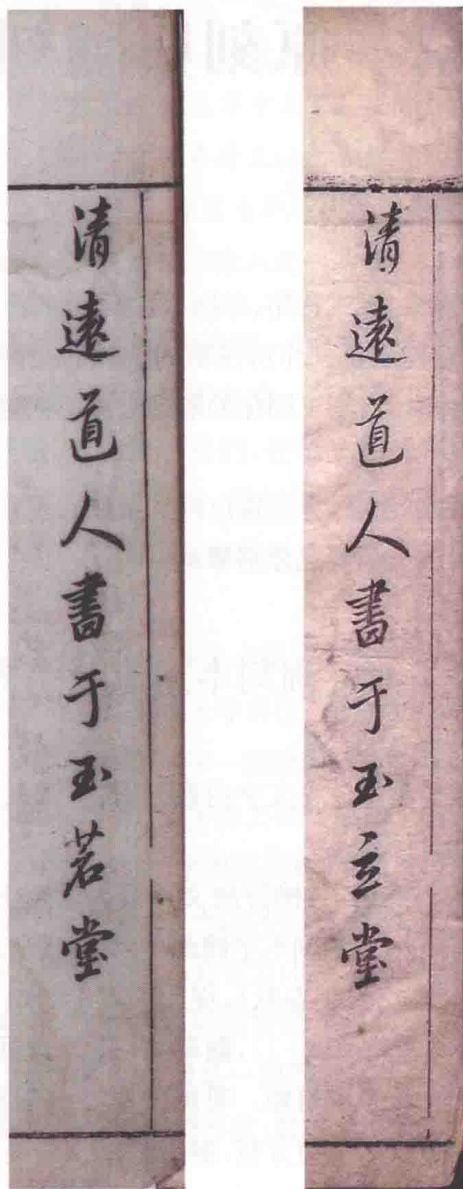 清遠道人書于玉茗堂
清遠道人書于玉立堂